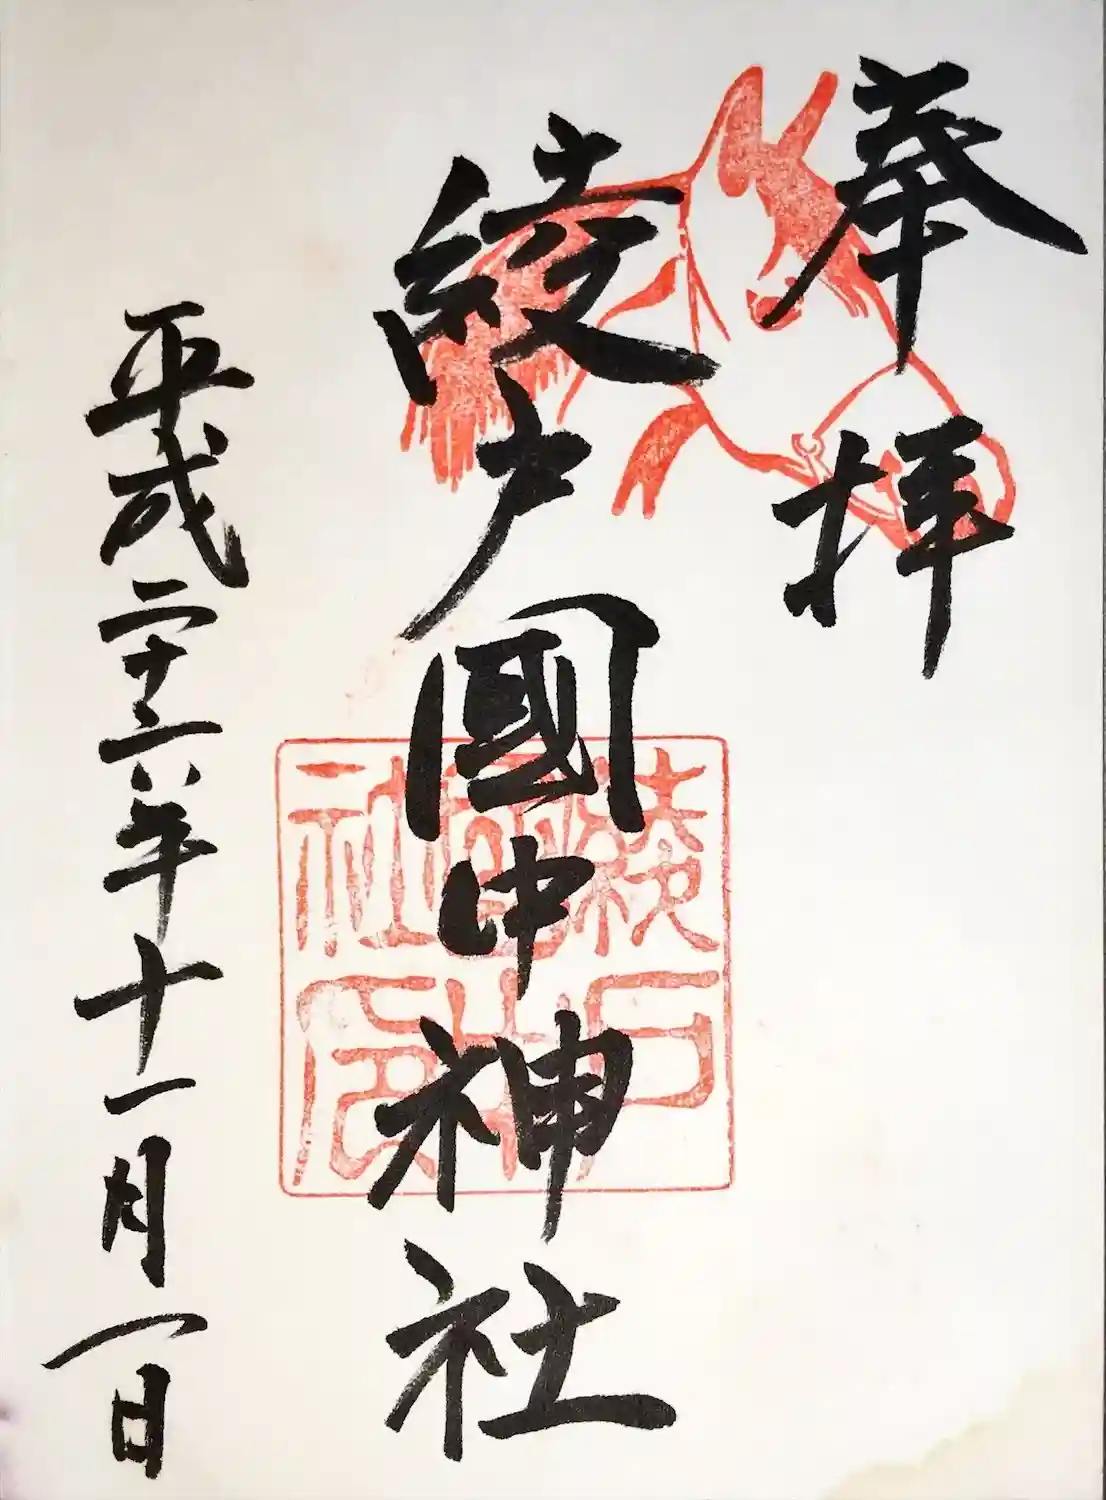 奉拝
綾戸國中神社
平成二十六年十一月一日
綾戸
國中
社印